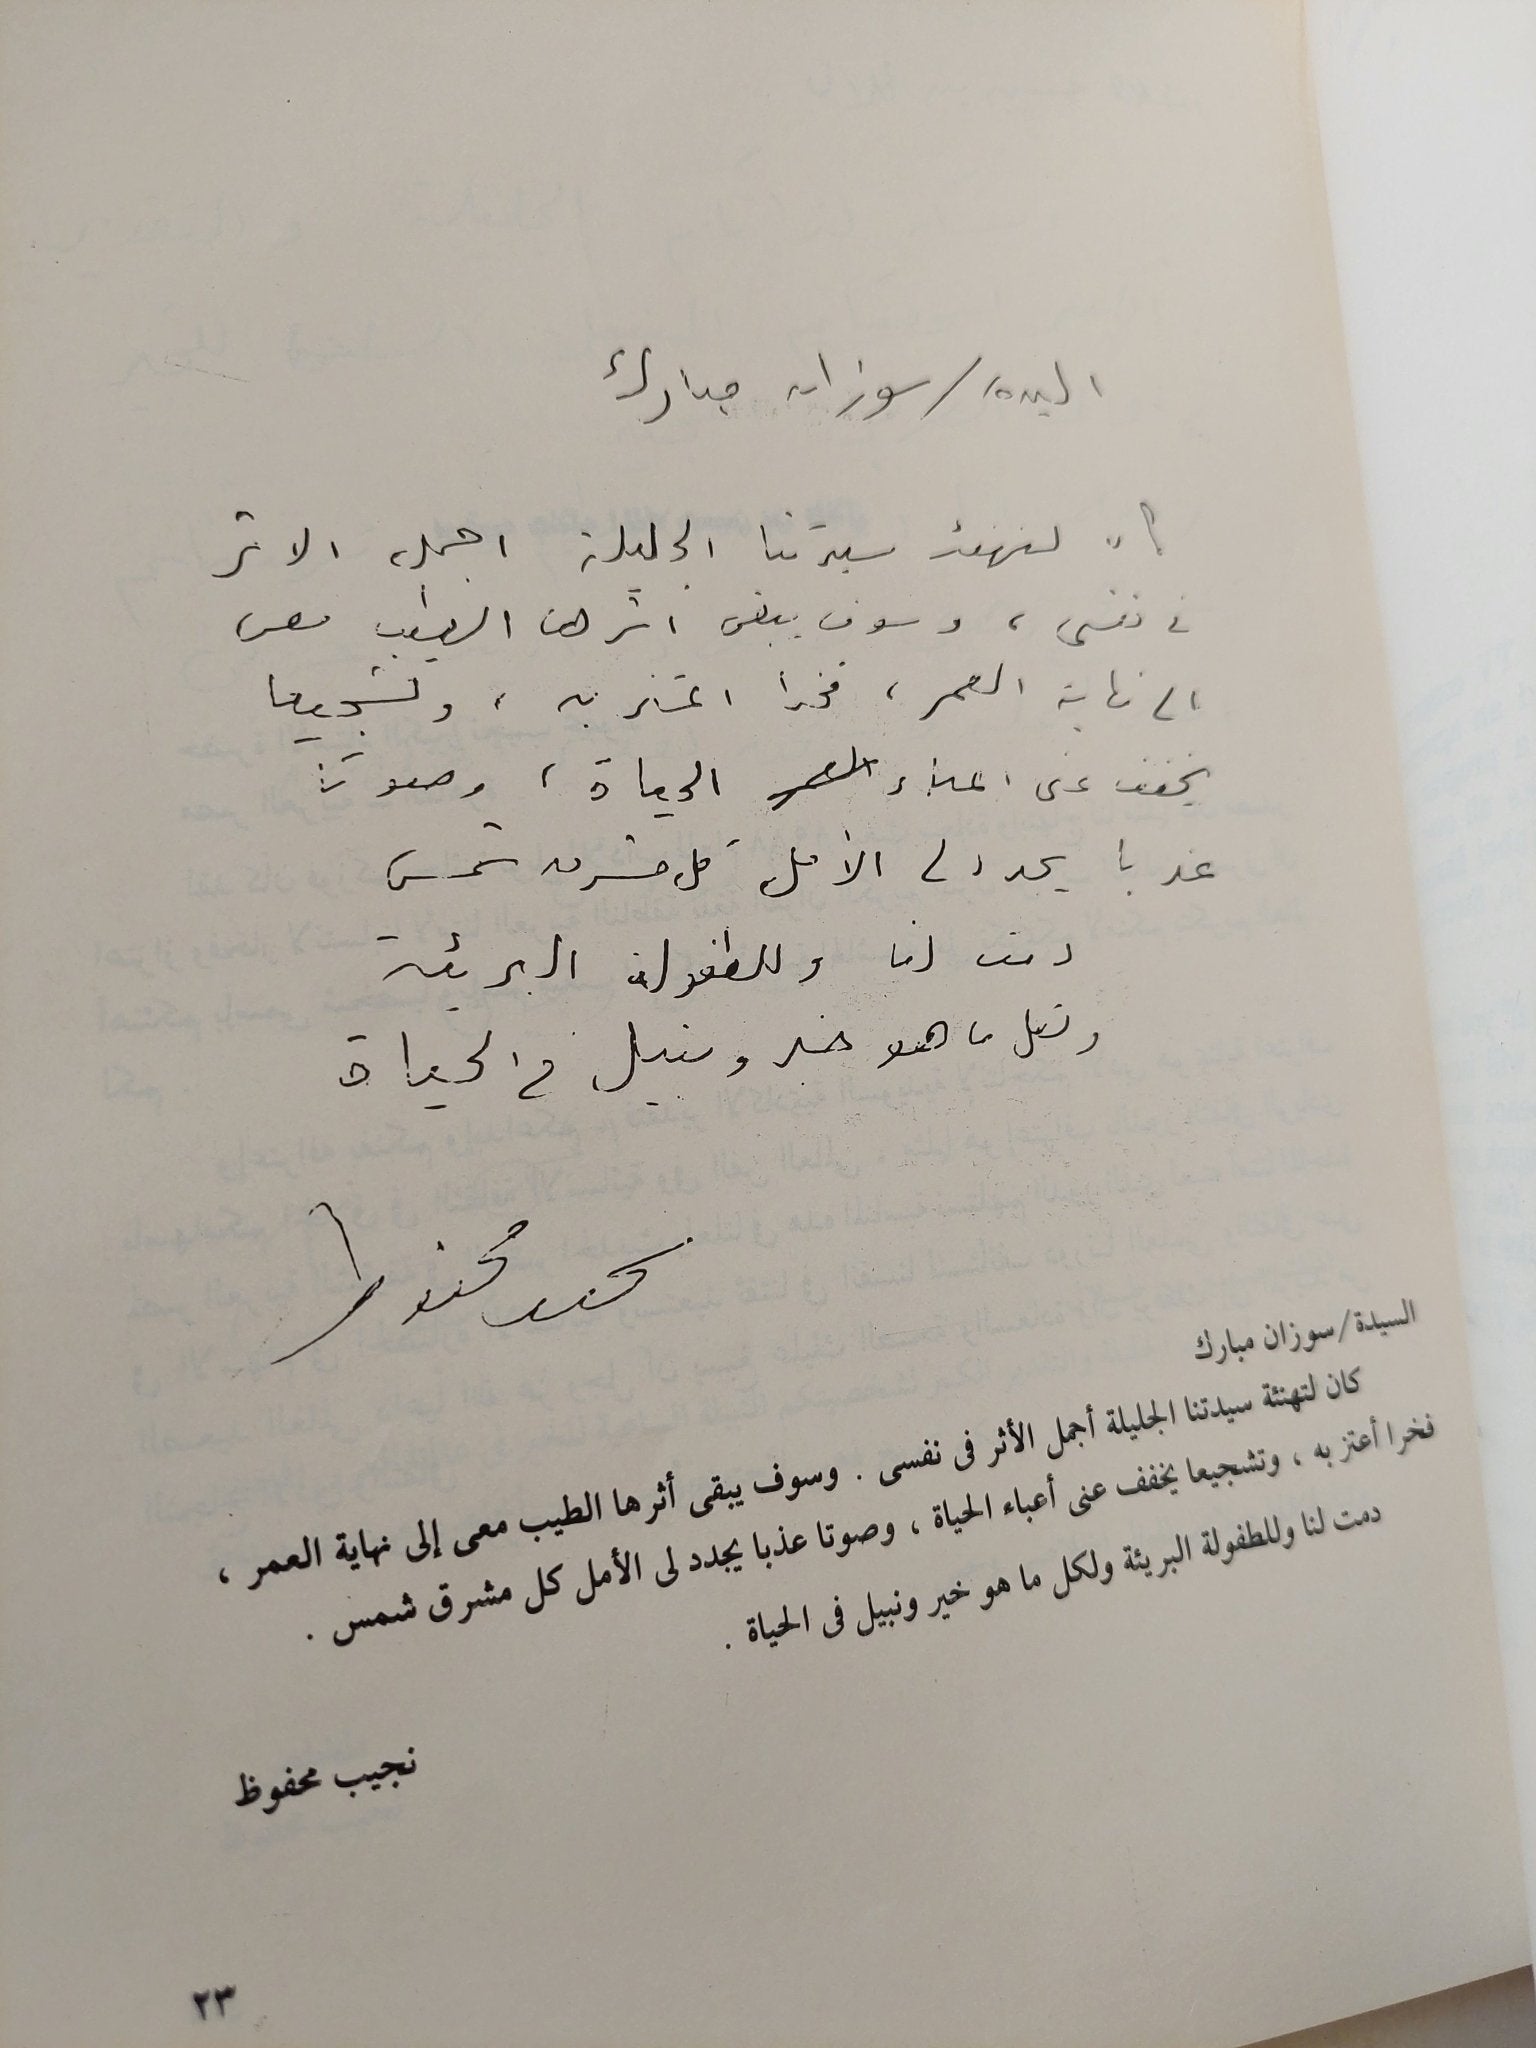 السيدة/سوزان مبارك
كان لتهنئة سيدتنا الجليلة اجمل الاثر
فى نفسى ، وسوف يبقى اثرها الطيب معى
الى نهاية العمر ، فخرا اعتز به ، وتشجيعا
يخفف عنى اعباء العمر الحياة ، وصوتا
عذبا يجدد لى الأمل كل مشرق شمس
دمت لنا وللطفولة البريئة
ولكل ما هو خير ونبيل فى الحياة
نجيب محفوظ
السيدة/سوزان مبارك
كان لتهنئة سيدتنا الجليلة أجمل الأثر فى نفسى . وسوف يبقى أثرها الطيب معى إلى نهاية العمر ،
فخرا أعتز به ، وتشجيعا يخفف عنى أعباء الحياة ، وصوتا عذبا يجدد لى الأمل كل مشرق شمس .
دمت لنا وللطفولة البريئة ولكل ما هو خير ونبيل فى الحياة .
نجيب محفوظ
٢٣